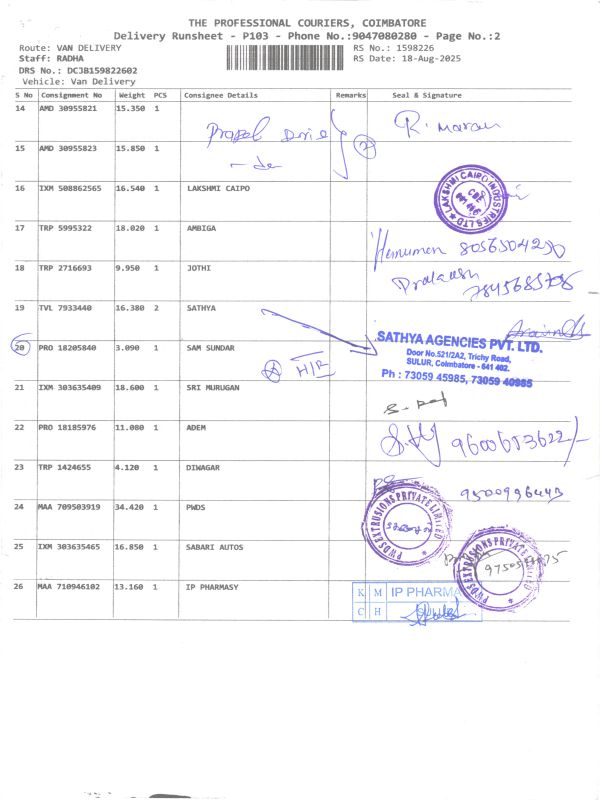 THE PROFESSIONAL COURIERS, COIMBATORE
Delivery Runsheet - P103 - Phone No.:9047080280 - Page No.:2
Route: VAN DELIVERY
RS No.: 1598226
Staff: RADHA
RS Date: 18-Aug-2025
DRS No.: DCJB159822602
Vehicle: Van Delivery
S No Consignment No Weight PCS Consignee Details Remarks Seal & Signature
14 AMD 30955821 15.350 1
R. Maran
2
15 AMD 30955823 15.850 1
16 IXM 508862565 16.540 1 LAKSHMI CAIPO
LAKSHMI CAIPO INDUSTRIES LTD
CBE
17 TRP 5995322 18.020 1 AMBIGA
18 TRP 2716693 9.950 1 JOTHI
19 TVL 7933440 16.380 2 SATHYA
SATHYA AGENCIES PVT. LTD.
Door No.521/2A2, Trichy Road,
SULUR, Coimbatore - 641 402.
Ph : 73059 45985, 73059 40985
20 PRO 18205840 3.090 1 SAM SUNDAR
H/R
21 IXM 303635409 18.600 1 SRI MURUGAN
22 PRO 18185976 11.080 1 ADEM
23 TRP 1424655 4.120 1 DIWAGAR
9500996443
24 MAA 709503919 34.420 1 PWDS
PWDS EXTRUSIONS PRIVATE LIMITED
25 IXM 303635465 16.850 1 SABARI AUTOS
PWDS EXTRUSIONS PRIVATE LIMITED
26 MAA 710946102 13.160 1 IP PHARMASY
K M IP PHARMA
C H